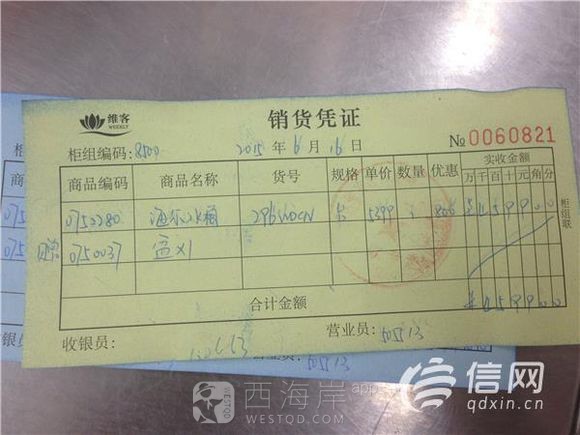 维客
WEEKLY
销货凭证
柜组编码: 8500 2015年6月16日 №0060821
商品编码 商品名称 货号 规格 单价 数量 优惠 实收金额
万 千 百 十 元 角 分
0752280 海尔冰箱 296WDCN 卡 5399 1 800 ¥459900
赠 0750037 盆×1
合计金额 ¥459900
收银员: 营业员: 60513
柜组联
60513
西海岸
WESTQD
WESTQD.COM
信网
qdxin.cn